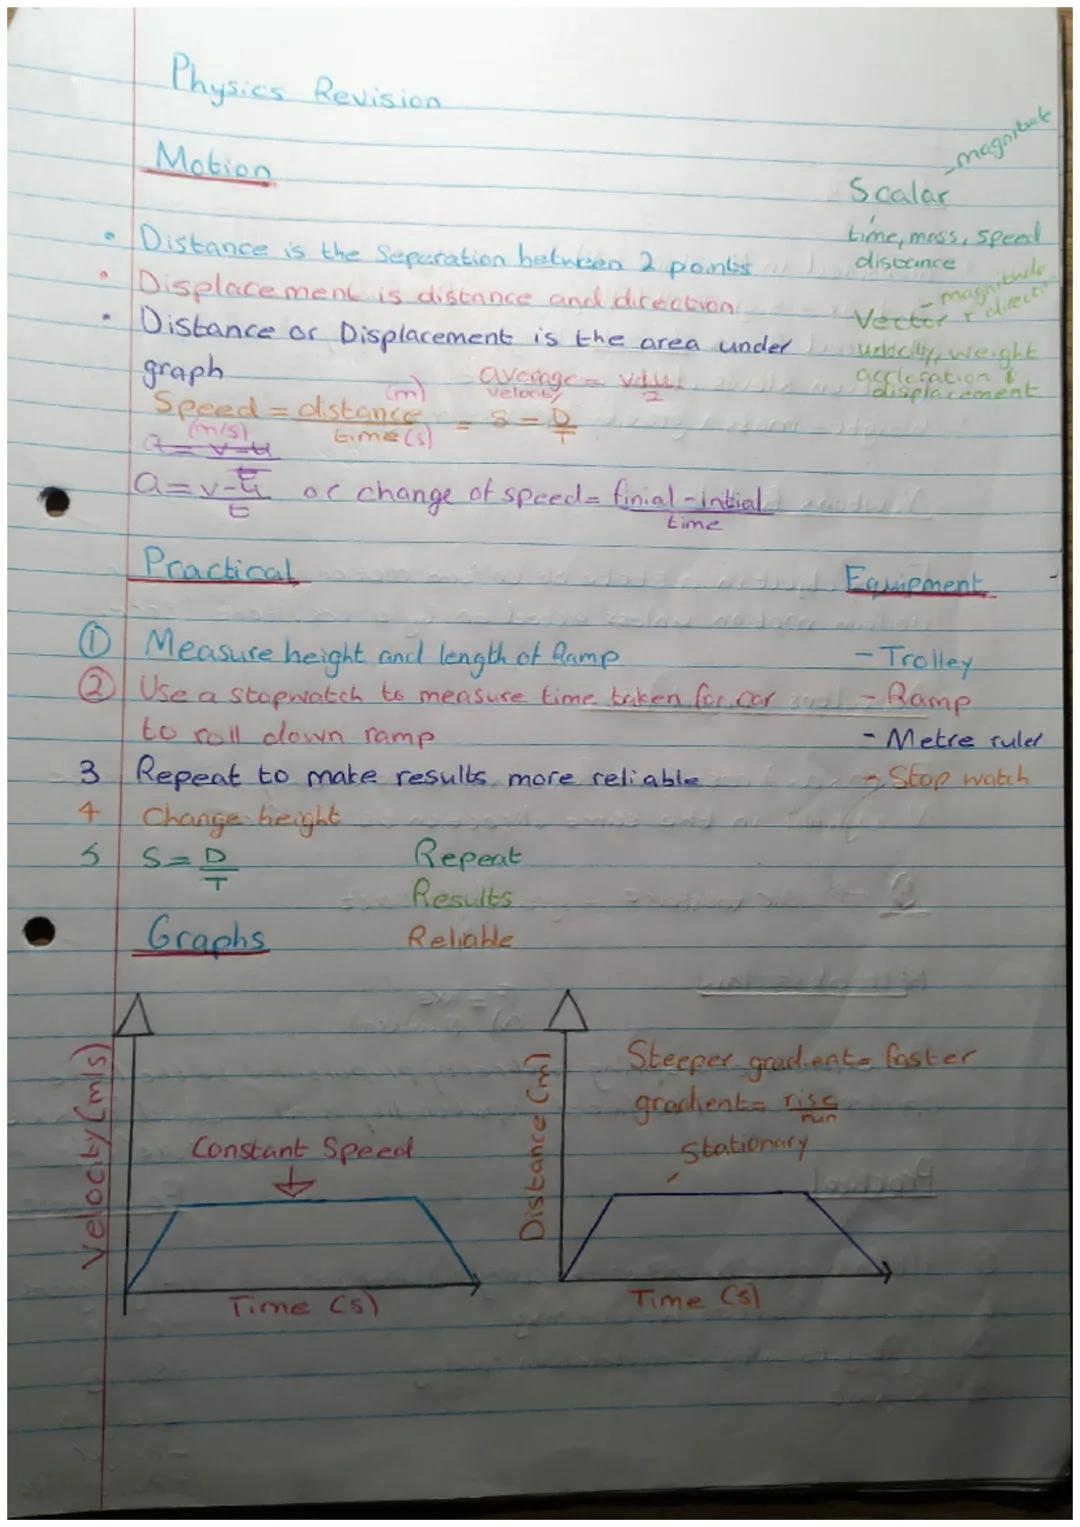 Physics Revision
Motion
magnitude
Scalar
time, mass, speed
distance
• Distance is the Separation between 2 points
• Displacement is distance and direction
• Distance or Displacement is the area under
graph
magnitude
Vector + directi
velocity, weight
accleration &
displacement
average = v+u
velocity 2
Speed = distance (m) = S = D
(m/s) time (s) T
a = v-u
t
a = v-u or change of speed = finial - intial
t time
Practical
① Measure height and length of Ramp
② Use a stopwatch to measure time taken for car
to roll down ramp
3 Repeat to make results more reliable
4 Change height
5 S = D
T
Repeat
Results
Reliable
Equipment
- Trolley
- Ramp
- Metre ruler
- Stop watch
Graphs
Velocity (m/s)
Constant Speed
Time (s)
Distance (m)
Steeper gradient = faster
gradient = rise
run
stationary
Time (s)